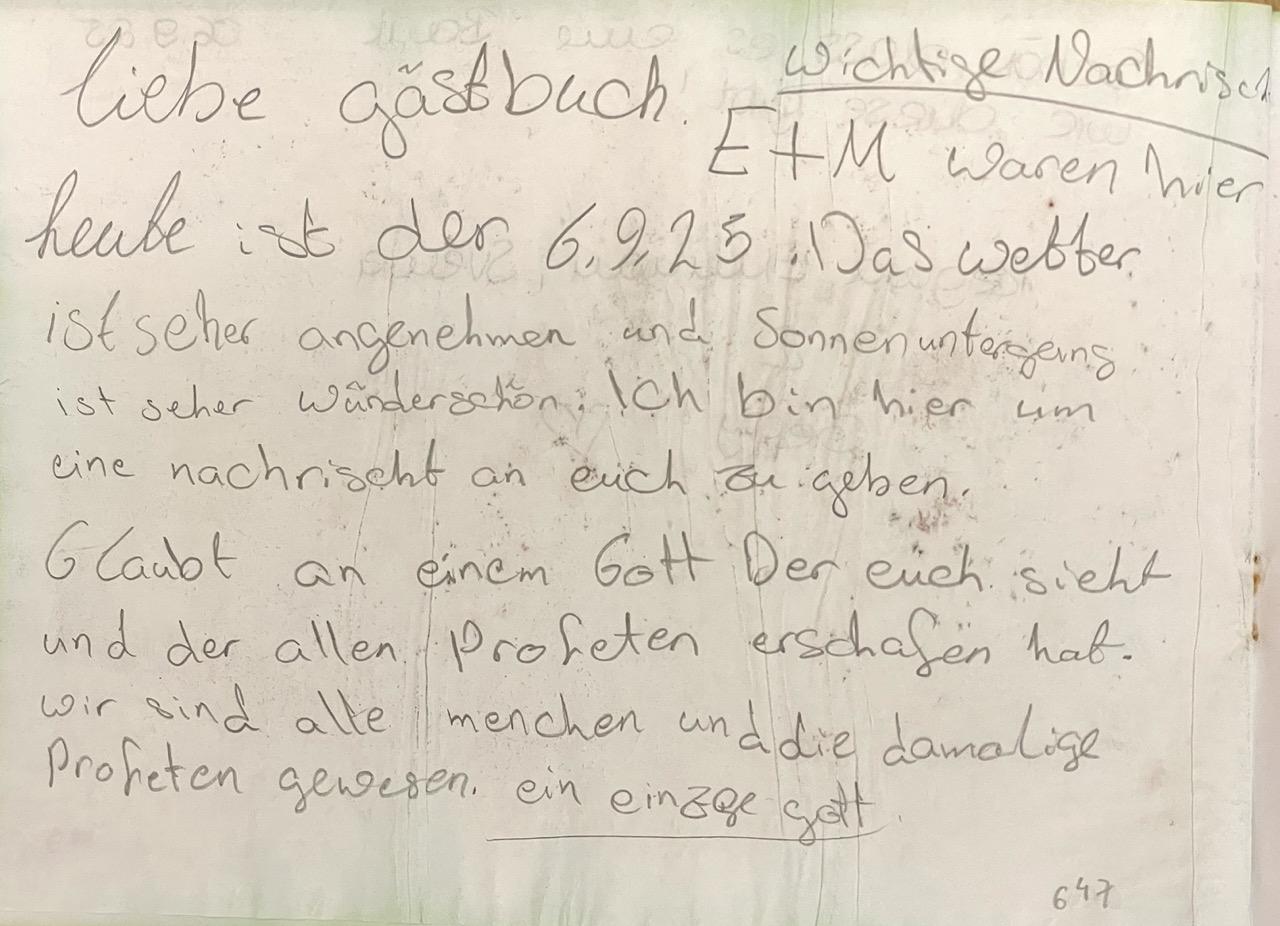 liebe gästbuch.
wichtige Nachrisch
E+M waren hier
heute ist der 6.9.25. Das wetter
ist seher angenehmen und Sonnenuntergang
ist seher wünderschön. Ich bin hier um
eine nachrischt an euch zu geben.
Glaubt an einem Gott Der euch sieht
und der allen Profeten erschafen hat.
wir sind alle menchen und die damalige
Profeten gewesen. ein einzge gott.
647